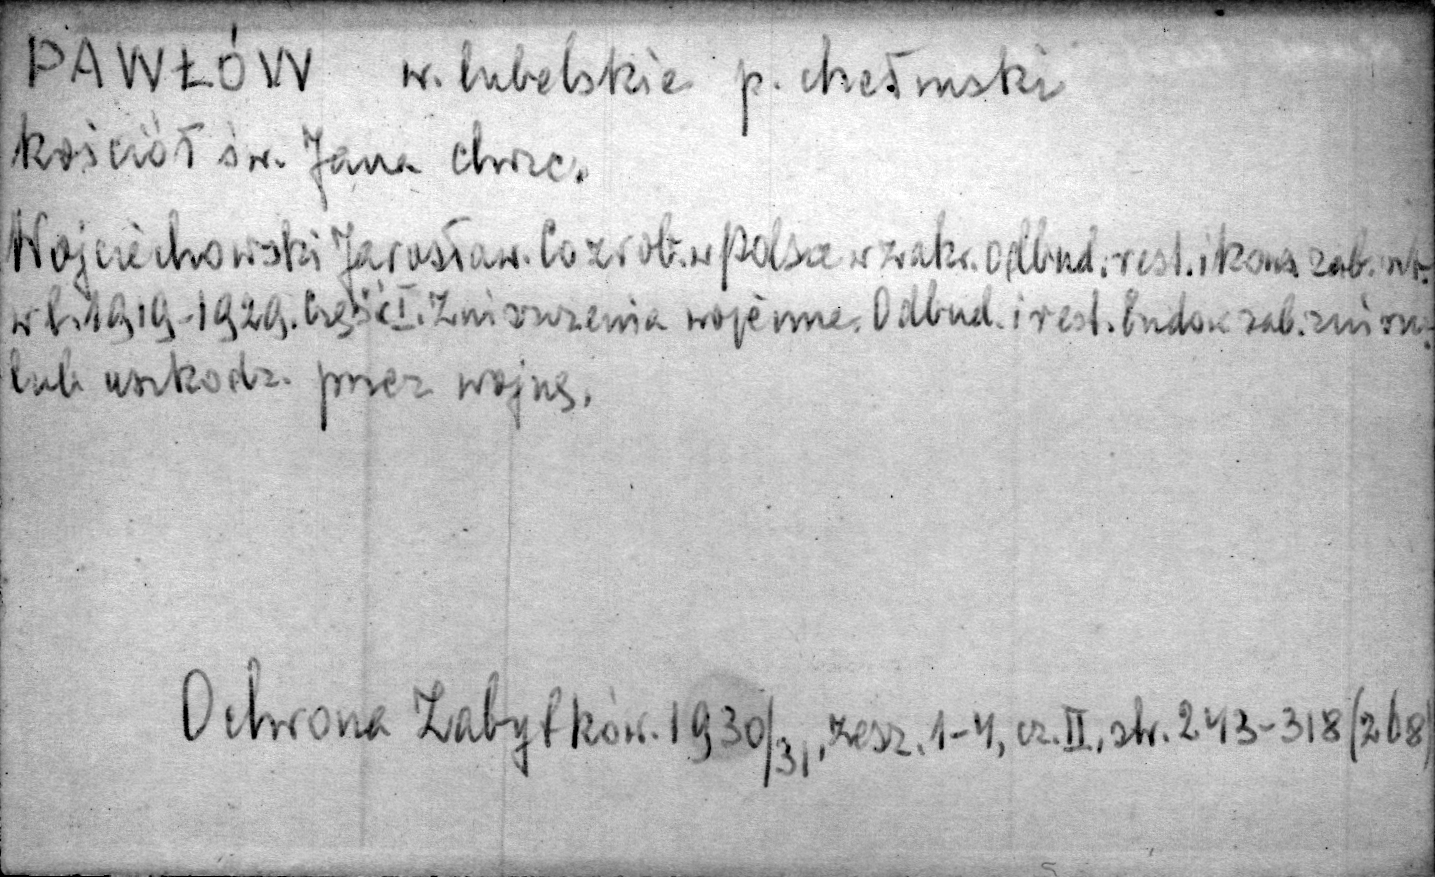 PAWŁÓW w. lubelskie p. chełmski
kościół św. Jana chrzc.
Wojciechowski Jarosław. Co zrob. w Polsce w zakr. odbud. rest. i kons. zab. szt.
w l. 1919-1929. Część I. Zniszczenia wojenne. Odbud. i rest. budow zab. zniszcz.
lub uszkodz. przez wojnę.
Ochrona Zabytków. 1930/31, zesz. 1-4, cz. II, str. 243-318 (268)